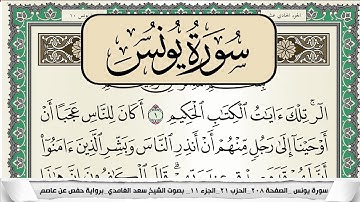 سُورَةُ يُونُسَ
الٓرۚ تِلْكَ ءَايَٰتُ ٱلْكِتَٰبِ ٱلْحَكِيمِ ١ أَكَانَ لِلنَّاسِ عَجَبًا أَنْ
أَوْحَيْنَآ إِلَىٰ رَجُلٍ مِّنْهُمْ أَنْ أَنذِرِ ٱلنَّاسَ وَبَشِّرِ ٱلَّذِينَ ءَامَنُوٓا۟
سورة يونس _الصفحة ٢٠٨_الحزب ٢١_الجزء ١١_ بصوت الشيخ سعد الغامدي_برواية حفص عن عاصم